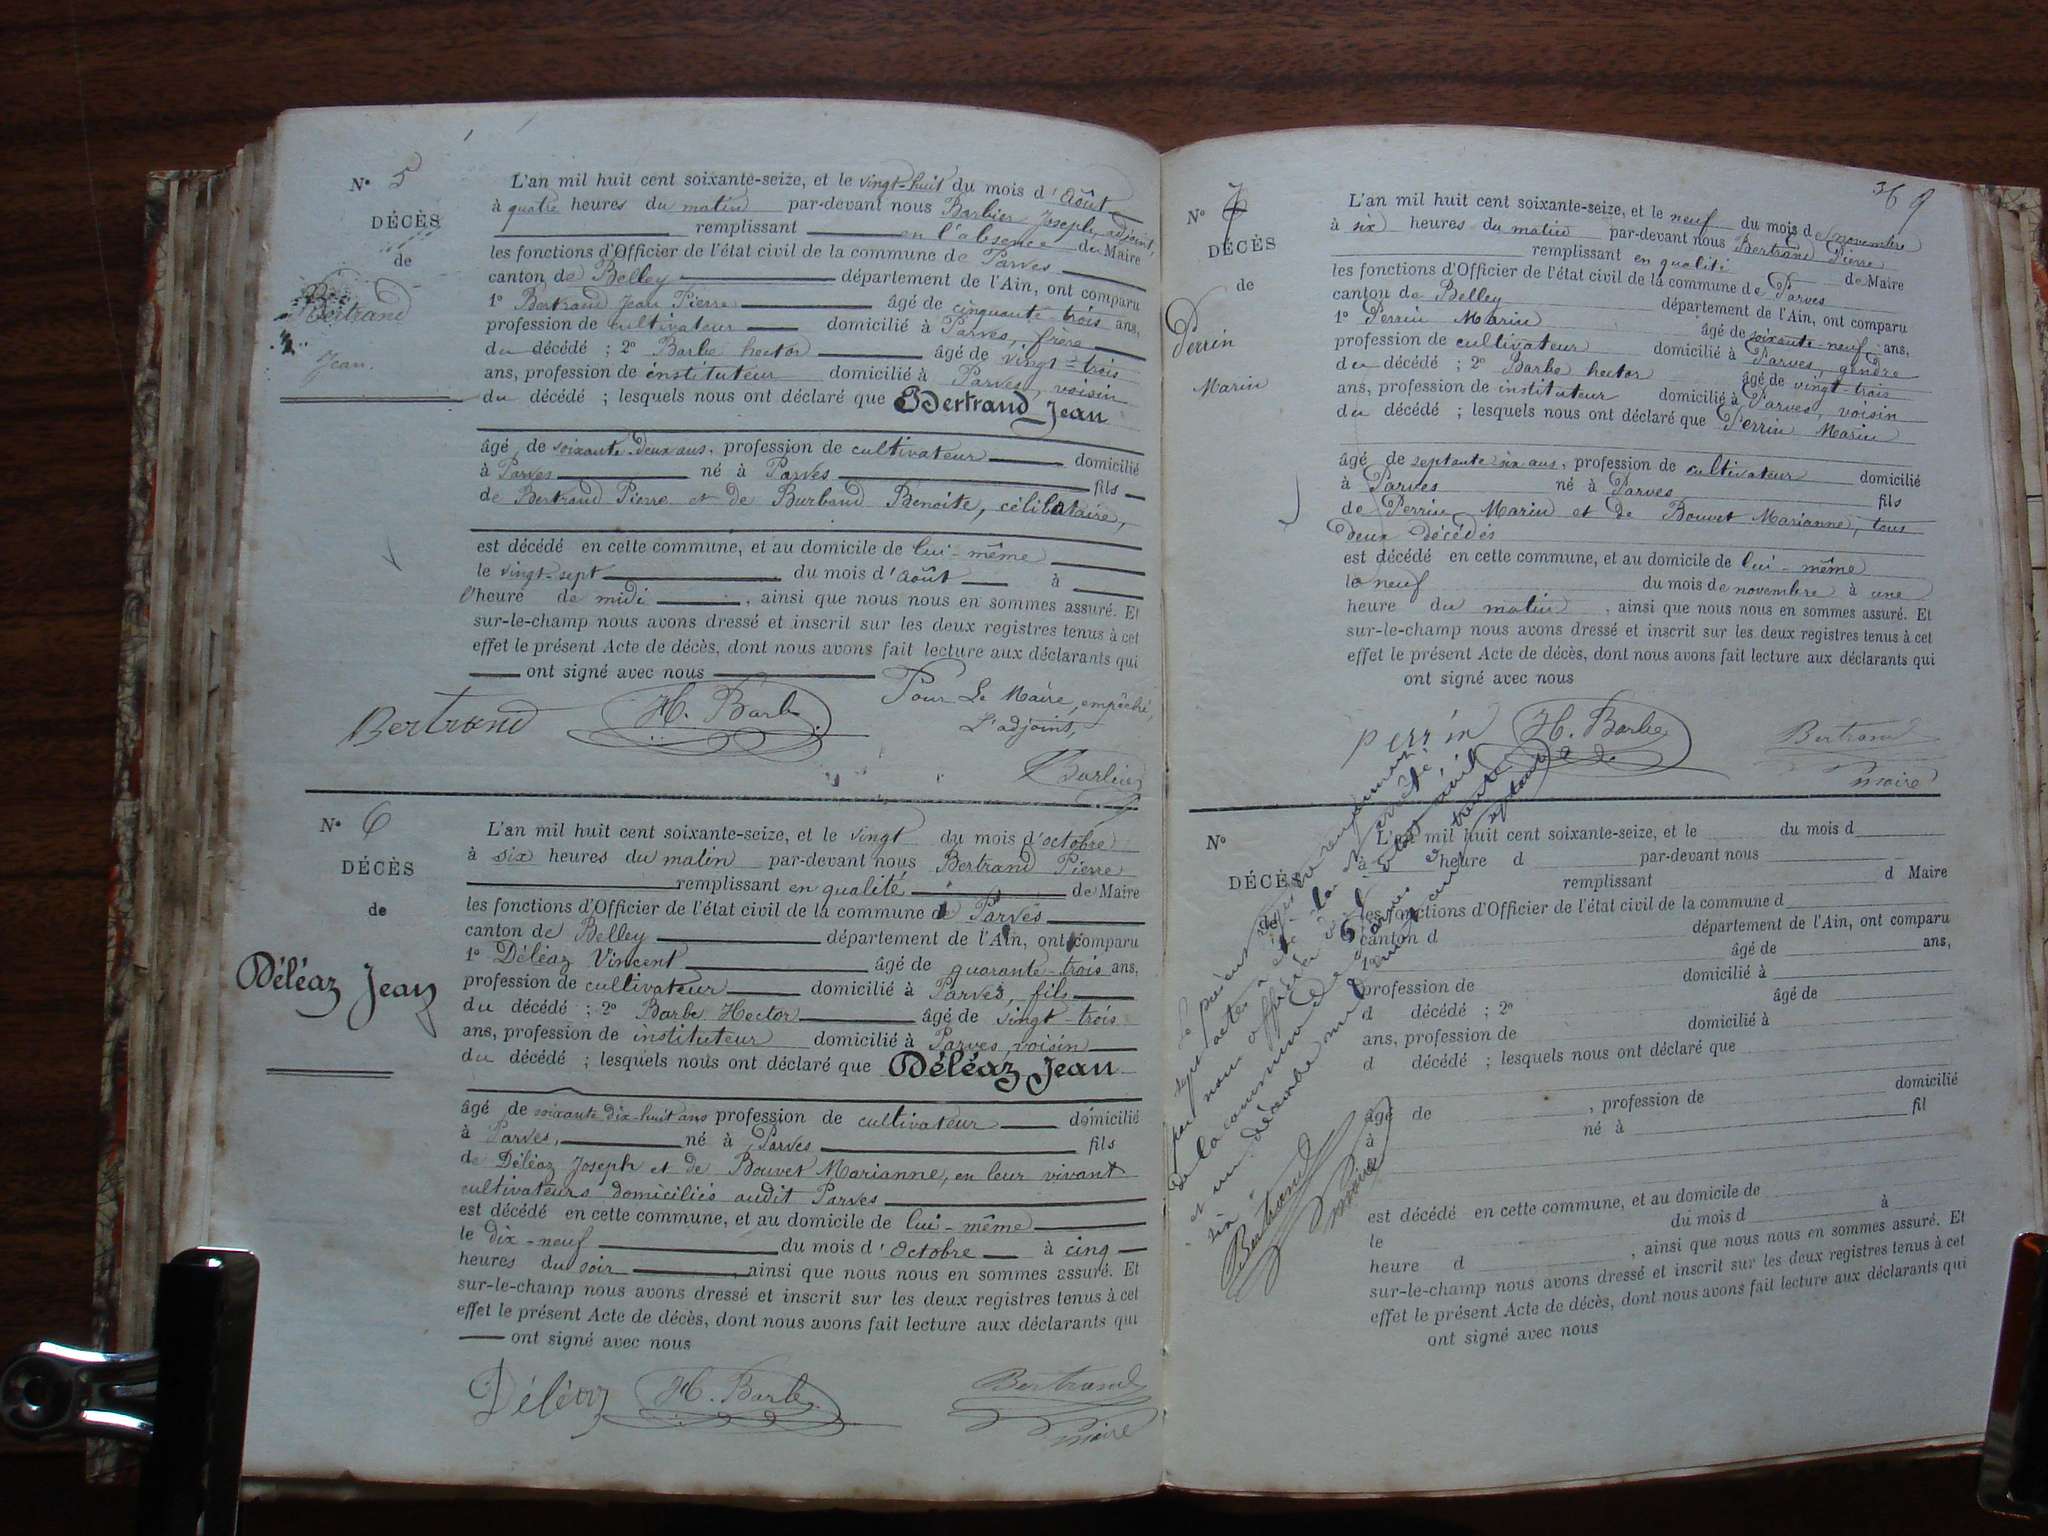 N° 5
DÉCÈS
de
Bertrand
Jean.
L'an mil huit cent soixante-seize, et le vingt-huit du mois d'Août
à quatre heures du matin par-devant nous Barbier Joseph, adjoint,
remplissant en l'absence du Maire
les fonctions d'Officier de l'état civil de la commune de Parves
canton de Belley département de l'Ain, ont comparu
1° Bertrand Jean Pierre âgé de cinquante-trois ans,
profession de cultivateur domicilié à Parves, frère
du décédé ; 2° Barbe hector âgé de vingt-trois
ans, profession de instituteur domicilié à Parves, voisin
du décédé ; lesquels nous ont déclaré que Bertrand Jean
âgé de soixante-deux ans, profession de cultivateur domicilié
à Parves né à Parves fils
de Bertrand Pierre et de Burband Benoite, célibataire,
est décédé en cette commune, et au domicile de lui-même
le vingt-sept du mois d'Août à
l'heure de midi, ainsi que nous nous en sommes assuré. Et
sur-le-champ nous avons dressé et inscrit sur les deux registres tenus à cet
effet le présent Acte de décès, dont nous avons fait lecture aux déclarants qui
ont signé avec nous
Pour Le Maire, empêché,
L'adjoint,
Bertrand H. Barbe
Barbier
N° 6
DÉCÈS
de
Déléaz Jean
L'an mil huit cent soixante-seize, et le vingt du mois d'octobre
à six heures du matin par-devant nous Bertrand Pierre
remplissant en qualité de Maire
les fonctions d'Officier de l'état civil de la commune de Parves
canton de Belley département de l'Ain, ont comparu
1° Déléaz Vincent âgé de quarante-trois ans,
profession de cultivateur domicilié à Parves, fils
du décédé ; 2° Barbe Hector âgé de vingt-trois
ans, profession de instituteur domicilié à Parves, voisin
du décédé ; lesquels nous ont déclaré que Déléaz Jean
âgé de soixante dix-huit ans profession de cultivateur domicilié
à Parves, né à Parves fils
de Déléaz Joseph et de Bouvet Marianne, en leur vivant
cultivateurs domiciliés audit Parves
est décédé en cette commune, et au domicile de lui-même
le dix-neuf du mois d'Octobre à cinq
heures du soir, ainsi que nous nous en sommes assuré. Et
sur-le-champ nous avons dressé et inscrit sur les deux registres tenus à cet
effet le présent Acte de décès, dont nous avons fait lecture aux déclarants qui
ont signé avec nous
Déléaz H. Barbe Bertrand
maire
369
N° 7
DÉCÈS
de
Perrin
Marin
L'an mil huit cent soixante-seize, et le neuf du mois de novembre
à six heures du matin par-devant nous Bertrand Pierre
remplissant en qualité de Maire
les fonctions d'Officier de l'état civil de la commune de Parves
canton de Belley département de l'Ain, ont comparu
1° Perrin Marin âgé de soixante-neuf ans,
profession de cultivateur domicilié à Parves, gendre
du décédé ; 2° Barbe hector âgé de vingt-trois
ans, profession de instituteur domicilié à Parves, voisin
du décédé ; lesquels nous ont déclaré que Perrin Marin
âgé de septante six ans, profession de cultivateur domicilié
à Parves né à Parves fils
de Perrin Marin et de Bouvet Marianne, tous
deux décédés
est décédé en cette commune, et au domicile de lui-même
le neuf du mois de novembre à une
heure du matin, ainsi que nous nous en sommes assuré. Et
sur-le-champ nous avons dressé et inscrit sur les deux registres tenus à cet
effet le présent Acte de décès, dont nous avons fait lecture aux déclarants qui
ont signé avec nous
perrin H. Barbe Bertrand
maire
N°
DÉCÈS
de
L'an mil huit cent soixante-seize, et le du mois d
à heure d par-devant nous
remplissant d Maire
les fonctions d'Officier de l'état civil de la commune d
canton d département de l'Ain, ont comparu
1° âgé de ans,
profession de domicilié à
d décédé ; 2° âgé de
ans, profession de domicilié à
d décédé ; lesquels nous ont déclaré que
âgé de, profession de domicilié
à né à fil
est décédé en cette commune, et au domicile de
le du mois d à
heure d, ainsi que nous nous en sommes assuré. Et
sur-le-champ nous avons dressé et inscrit sur les deux registres tenus à cet
effet le présent Acte de décès, dont nous avons fait lecture aux déclarants qui
ont signé avec nous
le présent registre renfermant
sept actes a été clos et arrêté
par nous officier de l'état civil
de la commune de Parves
décembre mil huit cent septante
six
Bertrand
maire